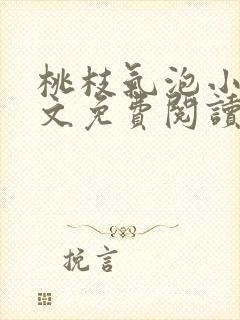 桃枝氣泡小
文免費閱讀
挽言